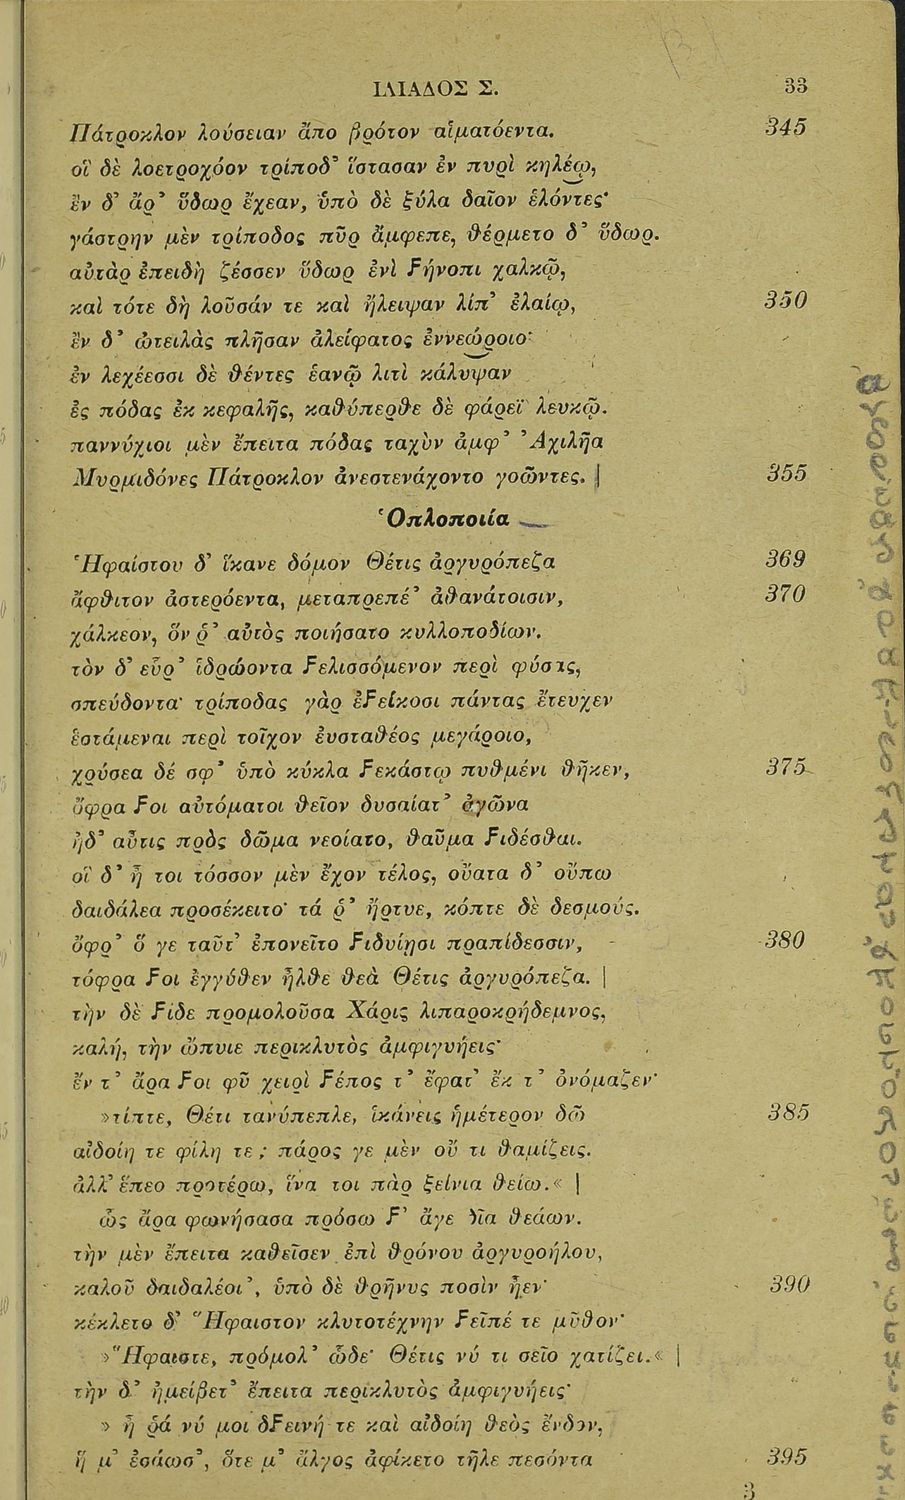 ΙΛΙΑΔΟΣ Σ. 33
Πάτροκλον λούσειαν ἄπο βρότον αἱματόεντα. 345
οἳ δὲ λοετροχόον τρίποδ᾽ ἵστασαν ἐν πυρὶ κηλέῳ,
ἐν δ᾽ ἄρ᾽ ὕδωρ ἔχεαν, ὑπὸ δὲ ξύλα δαῖον ἑλόντες·
γάστρην μὲν τρίποδος πῦρ ἄμφεπε, θέρμετο δ᾽ ὕδωρ.
αὐτὰρ ἐπειδὴ ζέσσεν ὕδωρ ἐνὶ Ϝήνοπι χαλκῷ,
καὶ τότε δὴ λοῦσάν τε καὶ ἤλειψαν λίπ᾽ ἐλαίῳ, 350
ἐν δ᾽ ὠτειλὰς πλῆσαν ἀλείφατος ἐννεώροιο·
ἐν λεχέεσσι δὲ θέντες ἑανῷ λιτὶ κάλυψαν
ἐς πόδας ἐκ κεφαλῆς, καθύπερθε δὲ φάρεϊ λευκῷ.
παννύχιοι μὲν ἔπειτα πόδας ταχὺν ἀμφ᾽ Ἀχιλῆα
Μυρμιδόνες Πάτροκλον ἀνεστενάχοντο γοῶντες. | 355
Ὁπλοποιία
Ἡφαίστου δ᾽ ἵκανε δόμον Θέτις ἀργυρόπεζα 369
ἄφθιτον ἀστερόεντα, μεταπρεπέ᾽ ἀθανάτοισιν, 370
χάλκεον, ὅν ῥ᾽ αὐτὸς ποιήσατο κυλλοποδίων.
τὸν δ᾽ εὗρ᾽ ἱδρώοντα Ϝελισσόμενον περὶ φύσας,
σπεύδοντα· τρίποδας γὰρ ἐϜείκοσι πάντας ἔτευχεν
ἑστάμεναι περὶ τοῖχον ἐυσταθέος μεγάροιο,
χρύσεα δέ σφ᾽ ὑπὸ κύκλα Ϝεκάστῳ πυθμένι θῆκεν, 375
ὄφρα Ϝοι αὐτόματοι θεῖον δυσαίατ᾽ ἀγῶνα
ἠδ᾽ αὖτις πρὸς δῶμα νεοίατο, θαῦμα Ϝιδέσθαι.
οἳ δ᾽ ἦ τοι τόσσον μὲν ἔχον τέλος, οὔατα δ᾽ οὔπω
δαιδάλεα προσέκειτο· τά ῥ᾽ ἤρτυε, κόπτε δὲ δεσμούς.
ὄφρ᾽ ὅ γε ταῦτ᾽ ἐπονεῖτο Ϝιδυίῃσι πραπίδεσσιν, 380
τόφρα Ϝοι ἐγγύθεν ἦλθε θεὰ Θέτις ἀργυρόπεζα. |
τὴν δὲ Ϝίδε προμολοῦσα Χάρις λιπαροκρήδεμνος,
καλή, τὴν ὤπυιε περικλυτὸς ἀμφιγυήεις·
ἔν τ᾽ ἄρα Ϝοι φῦ χειρὶ Ϝέπος τ᾽ ἔφατ᾽ ἔκ τ᾽ ὀνόμαζεν·
»τίπτε, Θέτι τανύπεπλε, ἱκάνεις ἡμέτερον δῶ 385
αἰδοίη τε φίλη τε; πάρος γε μὲν οὔ τι θαμίζεις.
ἀλλ᾽ ἕπεο προτέρω, ἵνα τοι πὰρ ξείνια θείω.« |
ὣς ἄρα φωνήσασα πρόσω Ϝ᾽ ἄγε δῖα θεάων.
τὴν μὲν ἔπειτα καθεῖσεν ἐπὶ θρόνου ἀργυροήλου,
καλοῦ δαιδαλέοι᾽, ὑπὸ δὲ θρῆνυς ποσὶν ἦεν· 390
κέκλετο δ᾽ Ἥφαιστον κλυτοτέχνην Ϝεῖπέ τε μῦθον·
»Ἥφαιστε, πρόμολ᾽ ὧδε· Θέτις νύ τι σεῖο χατίζει.« |
τὴν δ᾽ ἠμείβετ᾽ ἔπειτα περικλυτὸς ἀμφιγυήεις·
» ἦ ῥά νύ μοι δϜεινή τε καὶ αἰδοίη θεὸς ἔνδον,
ἥ μ᾽ ἐσάωσ᾽, ὅτε μ᾽ ἄλγος ἀφίκετο τῆλε πεσόντα 395
3